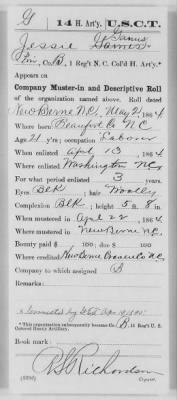 G | 14 H. Art'y. | U.S.C.T.
Jessie Games
Pvt., Co. B, 1 Reg't N. C. Col'd H. Art'y.*
Appears on
Company Muster-in and Descriptive Roll
of the organization named above. Roll dated
New Berne N.C., May 2, 1864
Where born Beaufort Co N.C.
Age 21 y'rs; occupation Laborer
When enlisted April 13, 1864
Where enlisted Washington N.C.
For what period enlisted 3 years.
Eyes Blk; hair Woolly
Complexion Blk; height 5 ft. 8 in.
When mustered in April 22, 1864
Where mustered in New Berne N.C.
Bounty paid $ 100; due $ 100
Where credited New Berne N.C.
Company to which assigned B
Remarks:
*This organization subsequently became Co. B, 14 Reg't U. S. Colored Heavy Artillery.
Book mark:
Richardson
Copyist.